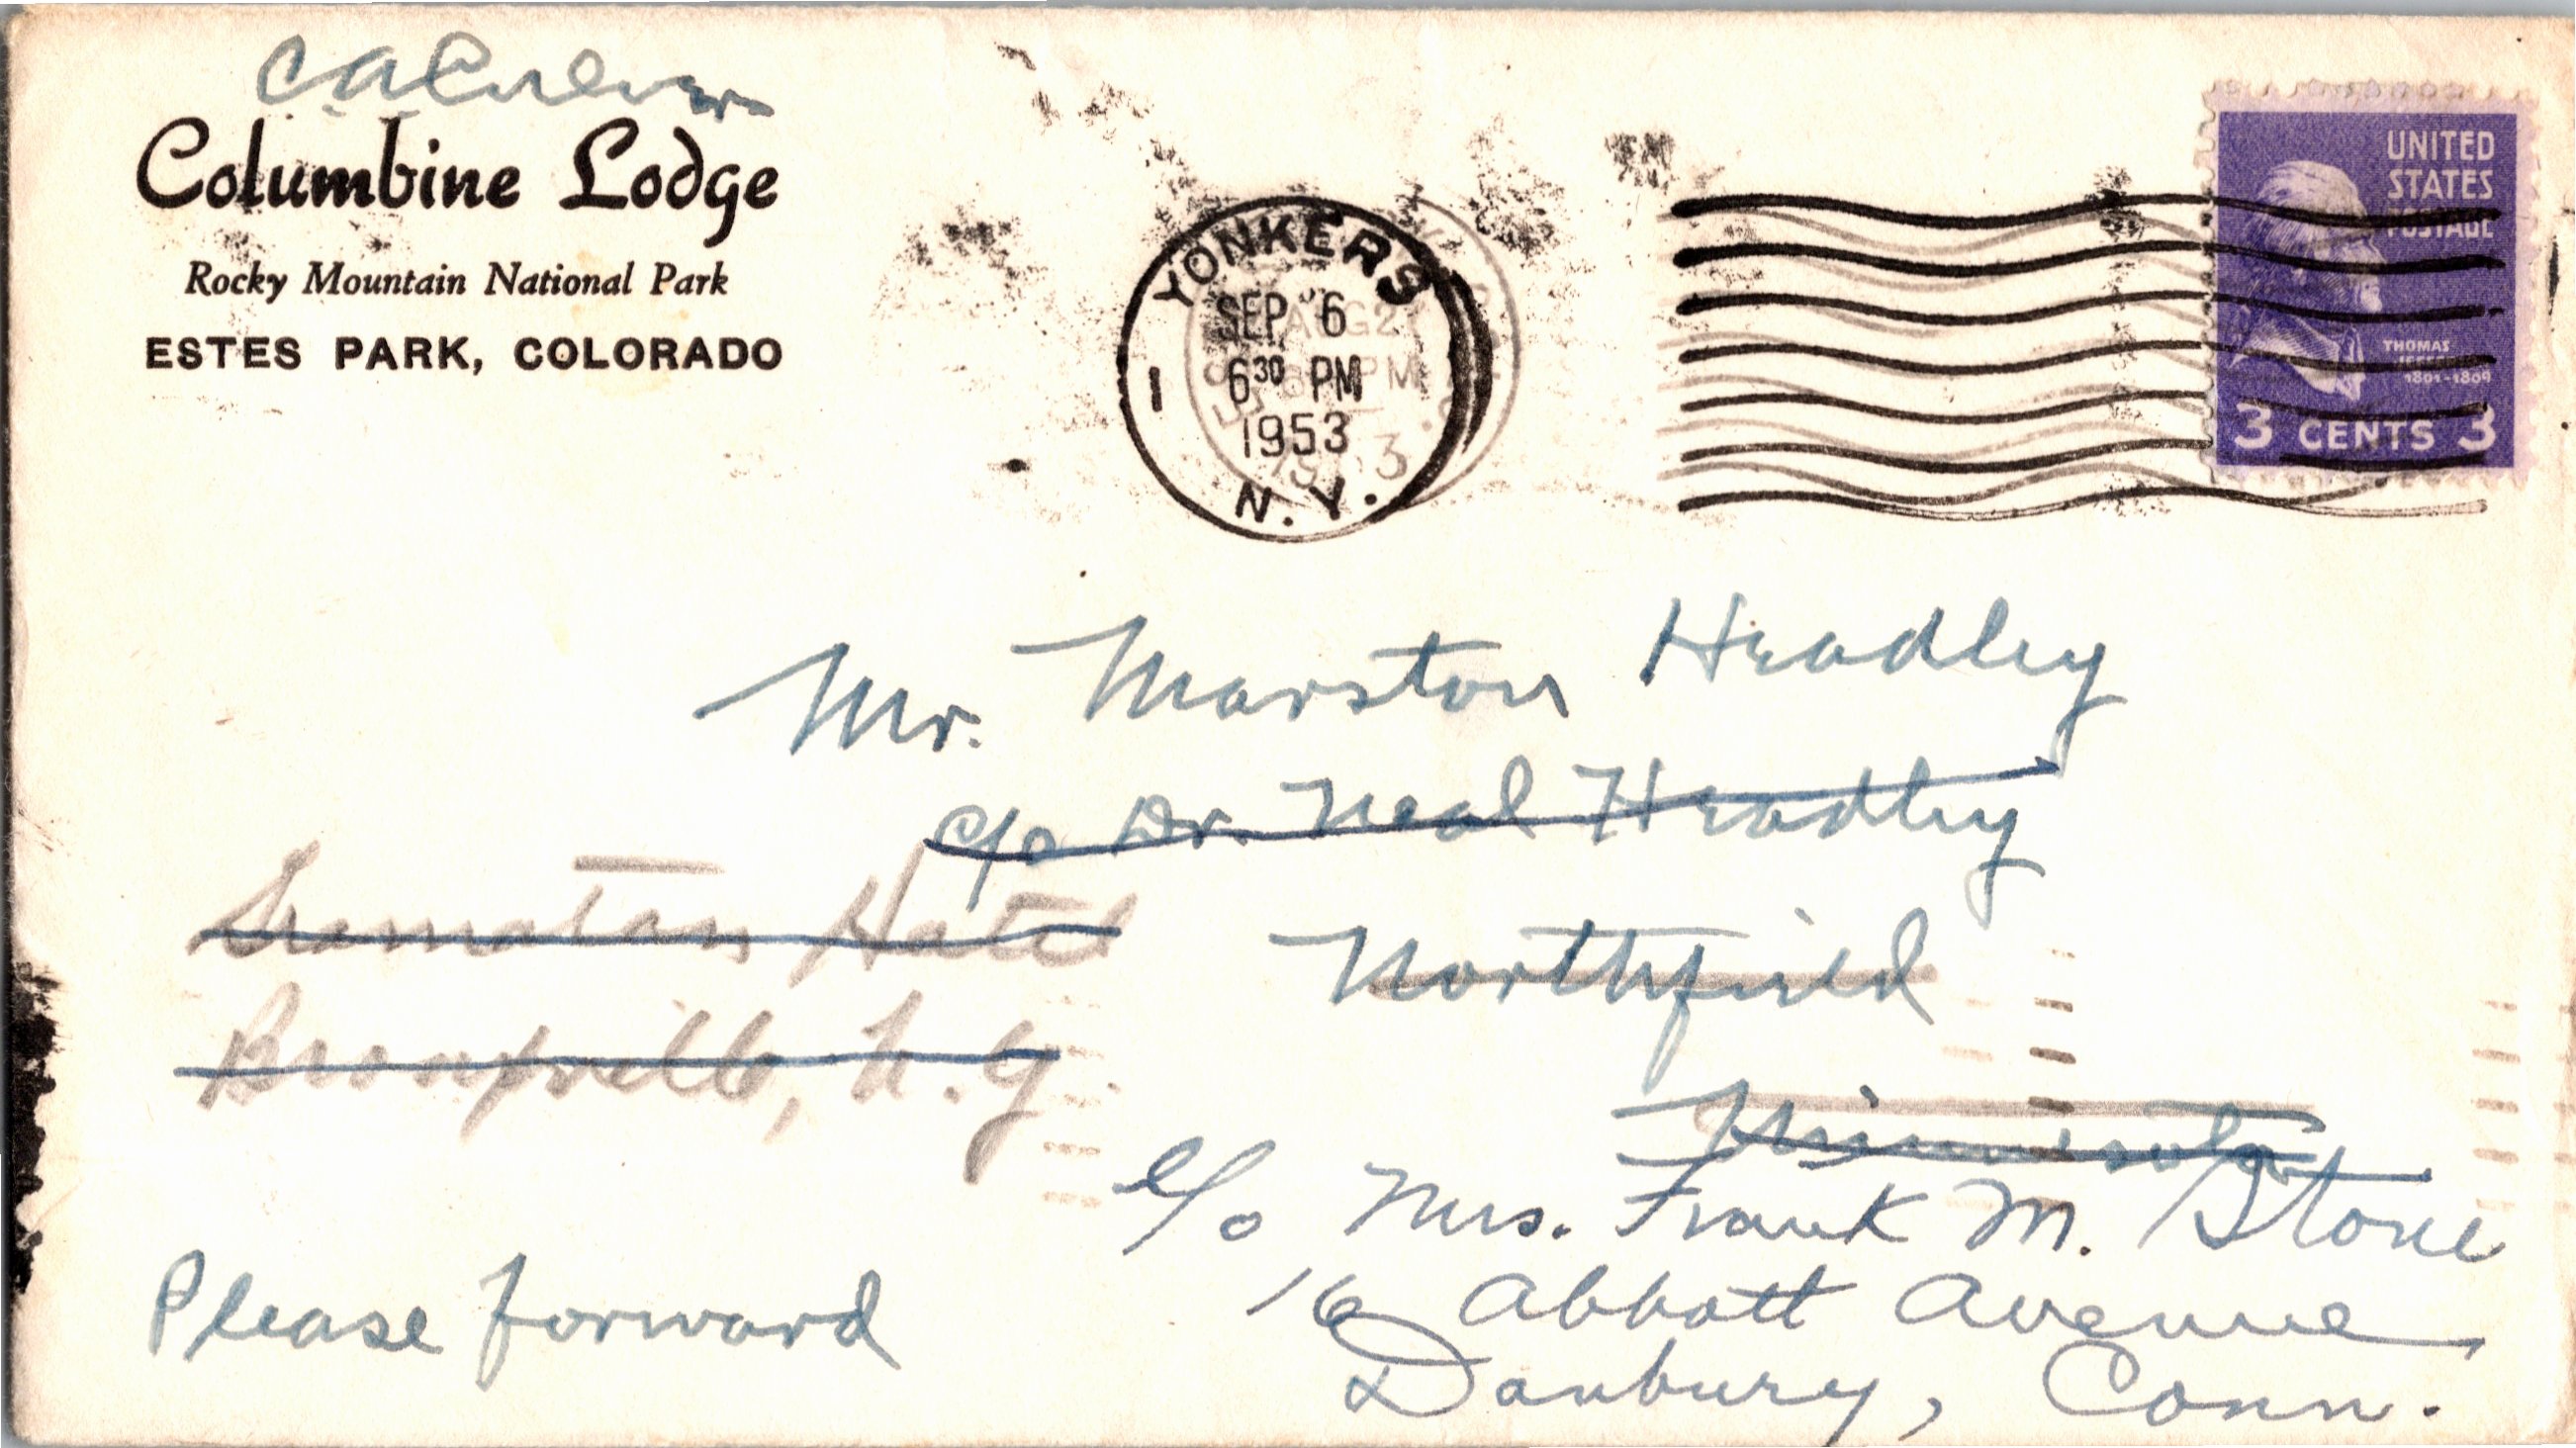 Columbine Lodge
Rocky Mountain National Park
ESTES PARK, COLORADO
YONKERS
SEP 6
6³⁰ PM
1953
N.Y.
1
UNITED
STATES
POSTAGE
THOMAS
JEFFERSON
1801-1809
3 CENTS 3
Mr. Marston Headley
c/o Dr. Neal Headley
Northfield
Minnesota
Gramatan Hotel
Bronxville, N.Y
Please forward
c/o Mrs. Frank M. Stone
16 Abbott Avenue
Danbury, Conn.